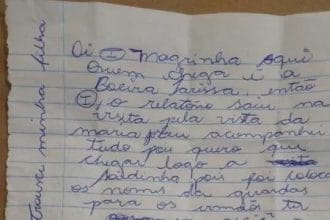 Oi I Magrinha aqui
Quem chega é a
Boeira Larissa, então
I, o relatorio saiu na
vizta pela vista da
maria eu acompanhei
tudo pou quero que
chegar logo a
saidinha pois foi coloca
os noms da guardas
para os irmãos ta
minha filha